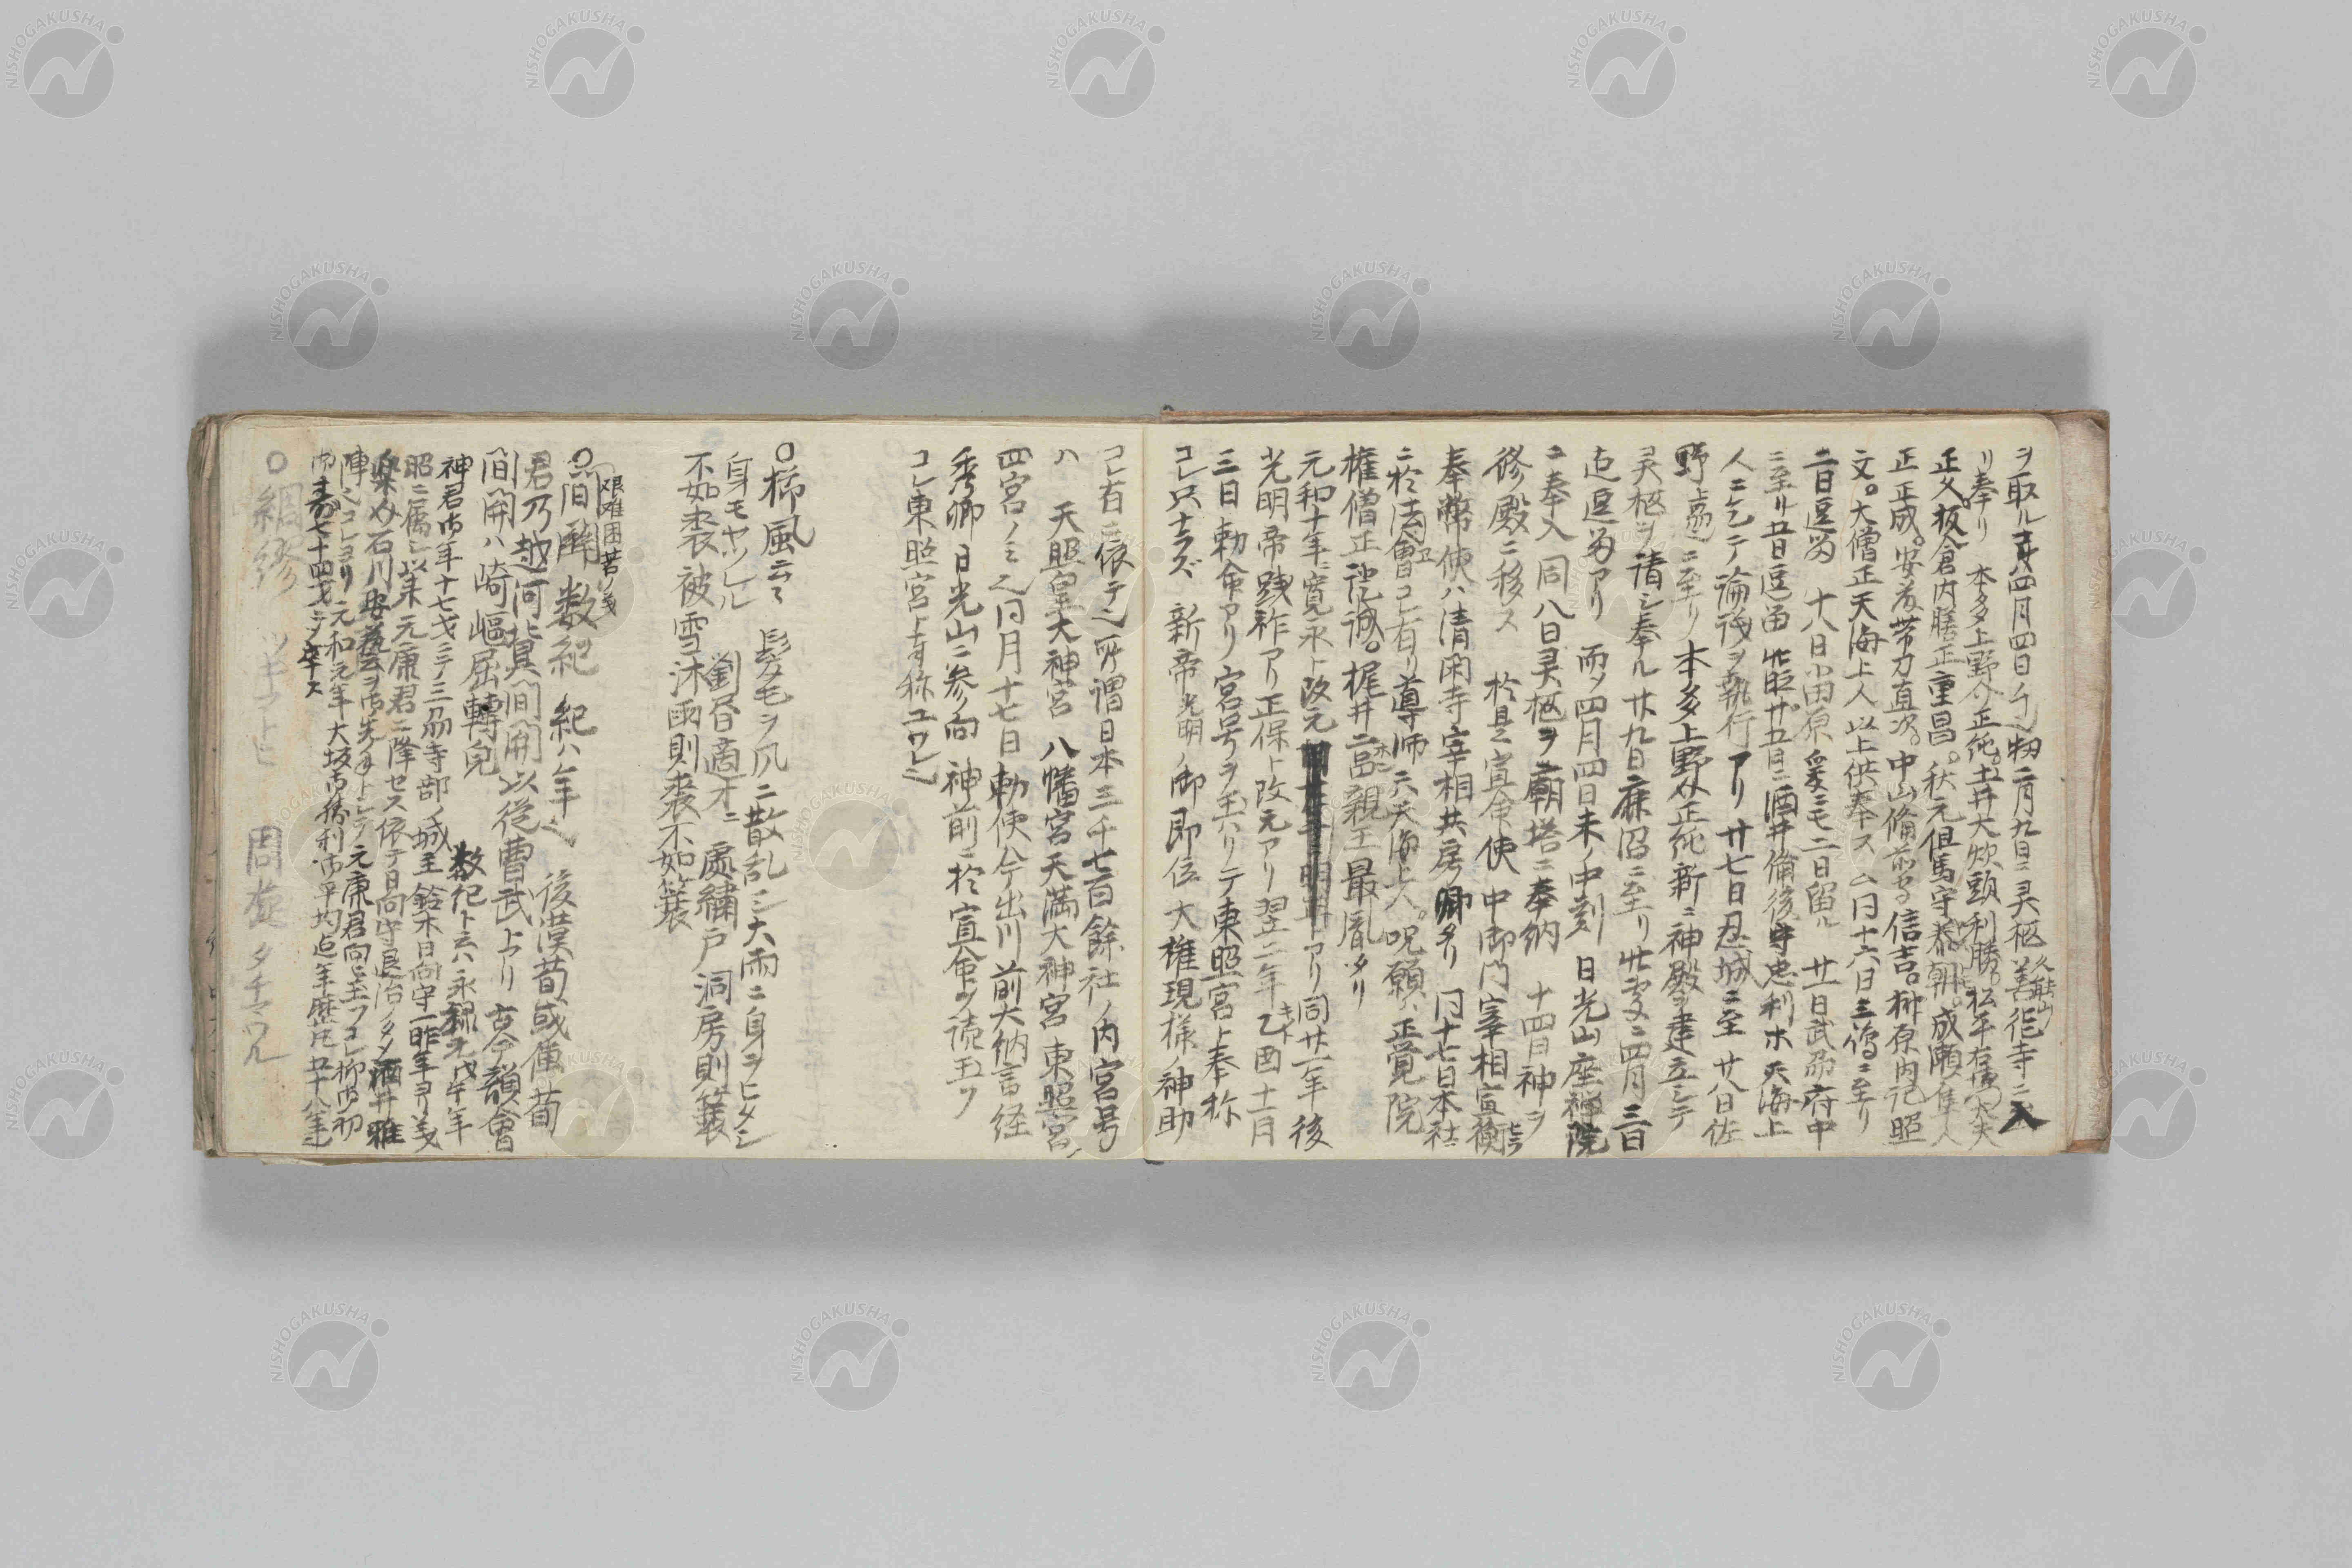 ヲ取ル才四月四日ナレ 二月九日ニ灵柩善徒寺ニ入
久能山ノ
リ奉リ 本多上野介正純。土井大炊頭利勝。松平右衛門大夫
正父。板倉内膳正重昌。秋元但馬守泰朝。成瀬隼人
正正成。安藤帯刀直次。中山備前守信吉。榊原内記照
文。大僧正天海上人以上供奉ス 同十六日三嶋ニ至リ
二日逗留 十八日小田原 爰ニモ二日留ル 廿一日武刕府中
ニ至リ 酒井備後守忠利 天海上
人ニ乞テ論議ヲ執行アリ 廿七日忍城ニ至 廿八日佐
野ニ至リ 本多上野介正純新ニ神殿ヲ建立シテ
灵柩ヲ請シ奉ル 廿九日麻沼ニ至リ 四月三日
迄逗留アリ 而〆四月四日未ノ中刻 日光山座禅院
ニ奉入 同八日灵柩ヲ廟塔ニ奉納 十四日神ヲ
修殿ニ移ス 於是宣命使 中御門宰相宣衡
奉幣使ハ清閑寺宰相共房卿タリ 同十七日本社
ニ於法會コレ有リ 導师ハ天海上人。呪願ハ正覚院
権僧正 。梶井二品親王最胤タリ
元和十年ニ寛永ト改元 アリ 同廿一年後
光明帝践祚アリ 正保ト改元アリ 翌二年乙酉十一月
三日勅命アリ 宮号ヲ玉ハリテ東照宮ト奉称
コレ只ナラズ 新帝光明ノ御即位大権現様ノ神助
コレ有ニ依テ也 所謂日本三千七百餘社ノ内宮号
ハ 天照皇大神宮 八幡宮 天満大神宮 東照宮ノ
四宮ノミ也 同月十七日勅使ハ今出川前大納言経
季卿日光山ニ参向 神前ニ於宣命ヲ読玉フ
コレ東照宮ト奉称ユヱレ也
○櫛風云々 髪毛ヲ風ニ散乱シ大雨ニ身ヲヒタシ
身モヤツレル 劉晝適才ニ 處繡戸洞房則簑
不如裘 被雪沐雨則裘不如簑
艱難困苦ノ義
○間關数紀 紀ハ年也 後漢荀彧傳 荀
君乃越河冀間關以從曹武上アリ 古今韻會
間關ハ崎嶇屈轉皃 数紀ト云ハ永禄元戊午年
神君御年十七才ニテ三刕寺部ノ城主鈴木日向守一昨年ヨリ義
昭ニ属シ以来元康君ニ降セス依テ日向守良治ノタメ酒井雅
楽介石川安藝ヲ御先手トシテ元康君向ヒ玉フコレ御初
陣也 コレヨリ元和元年大坂御勝利御平均迄年歴凡五十八年也
御寿七十四才ニテ卒ス
○綢繆 ツキマトヒ 周旋 タチマワル